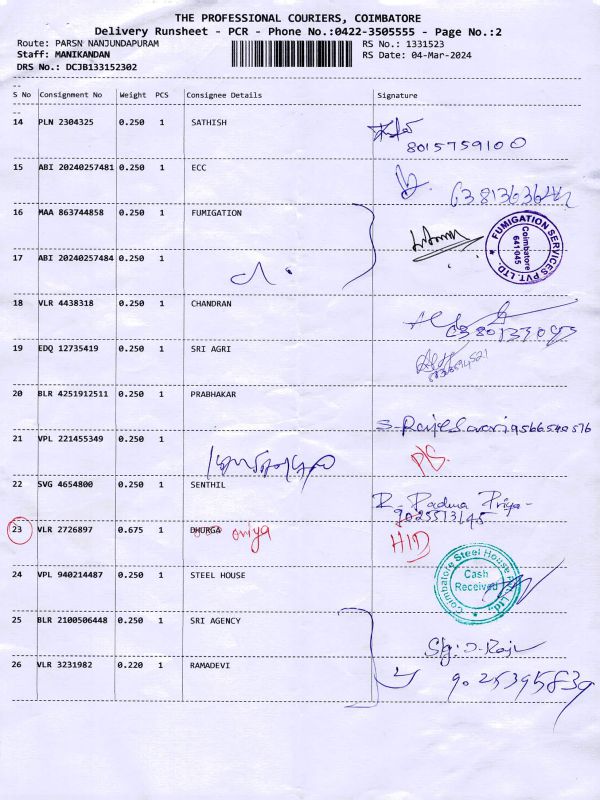 THE PROFESSIONAL COURIERS, COIMBATORE
Delivery Runsheet - PCR - Phone No.:0422-3505555 - Page No.:2
Route: PARSN NANJUNDAPURAM RS No.: 1331523
Staff: MANIKANDAN RS Date: 04-Mar-2024
DRS No.: DCJB133152302
S No Consignment No Weight PCS Consignee Details Signature
14 PLN 2304325 0.250 1 SATHISH
8015759100
15 ABI 20240257481 0.250 1 ECC
16 MAA 863744858 0.250 1 FUMIGATION
FUMIGATION SERVICES PVT. LTD.
Coimbatore
641 045
17 ABI 20240257484 0.250 1
18 VLR 4438318 0.250 1 CHANDRAN
19 EDQ 12735419 0.250 1 SRI AGRI
20 BLR 4251912511 0.250 1 PRABHAKAR
9566540576
21 VPL 221455349 0.250 1
22 SVG 4654800 0.250 1 SENTHIL
R. Padma Priya-
9025573145
23 VLR 2726897 0.675 1 DHURGA
HID
24 VPL 940214487 0.250 1 STEEL HOUSE
Coimbatore Steel House Ltd.
Cash
Received
25 BLR 2100506448 0.250 1 SRI AGENCY
26 VLR 3231982 0.220 1 RAMADEVI
9025395839